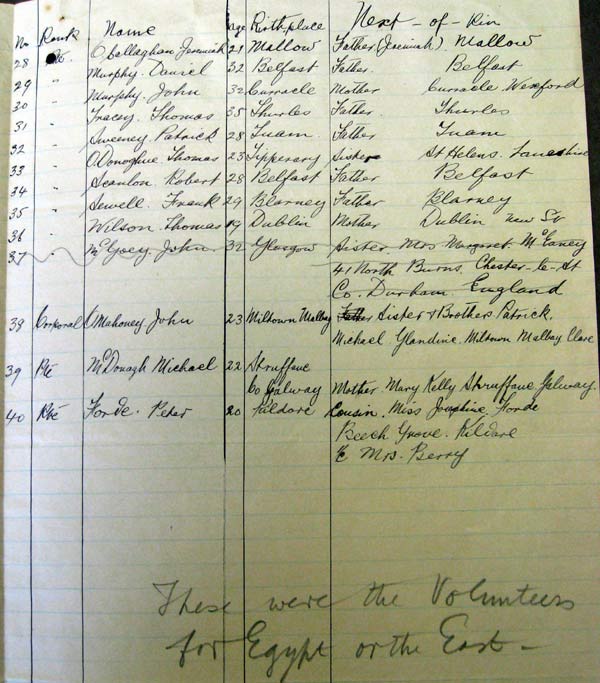 No Rank Name Age Birthplace Next-of-Kin
28 Pte. O'Callaghan Jeremiah 21 Mallow Father (Jeremiah) Mallow
29 " Murphy. Daniel 32 Belfast Father. Belfast
30 " Murphy. John 32 Curracloe Mother Curracloe Wexford
31 " Tracey. Thomas 35 Thurles Father. Thurles
32 " Sweeney. Patrick 28 Tuam. Father Tuam
33 " O'Donoghue Thomas 23 Tipperary Sister St Helens. Lancashire
34 " Scanlon. Robert 28 Belfast Father Belfast
35 " Sewell. Frank 29 Blarney Father Blarney
36 " Wilson. Thomas 19 Dublin Mother Dublin
37 " McGoey. John. 32 Glasgow Sister. Mrs Margaret
41 North Burns. Chester-le-St
Co. Durham England
38 Corporal O'Mahoney John 23 Miltown Malbay Father Sister & Brothers. Patrick.
Michael Glandine. Miltown Malbay Clare
39 Pte McDonagh Michael 22 Struffane
Co Galway Mother. Mary Kelly Struffane Galway.
40 Pte Forde. Peter 20 Kildare Cousin. Miss Josephine. Forde
Beech Grove. Kildare
Mrs. Berry
These were the Volunteers
for Egypt or the East -